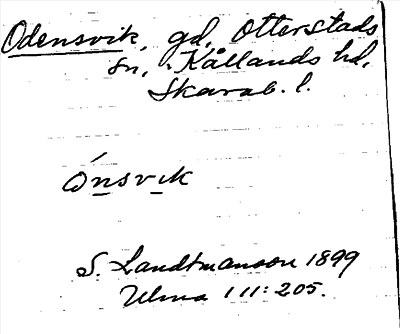 Odensvik, gd, Otterstads
sn, Kållands hd,
Skarab. l.
Ónsvik
S. Landtmanson 1899
Ulma 111: 205.